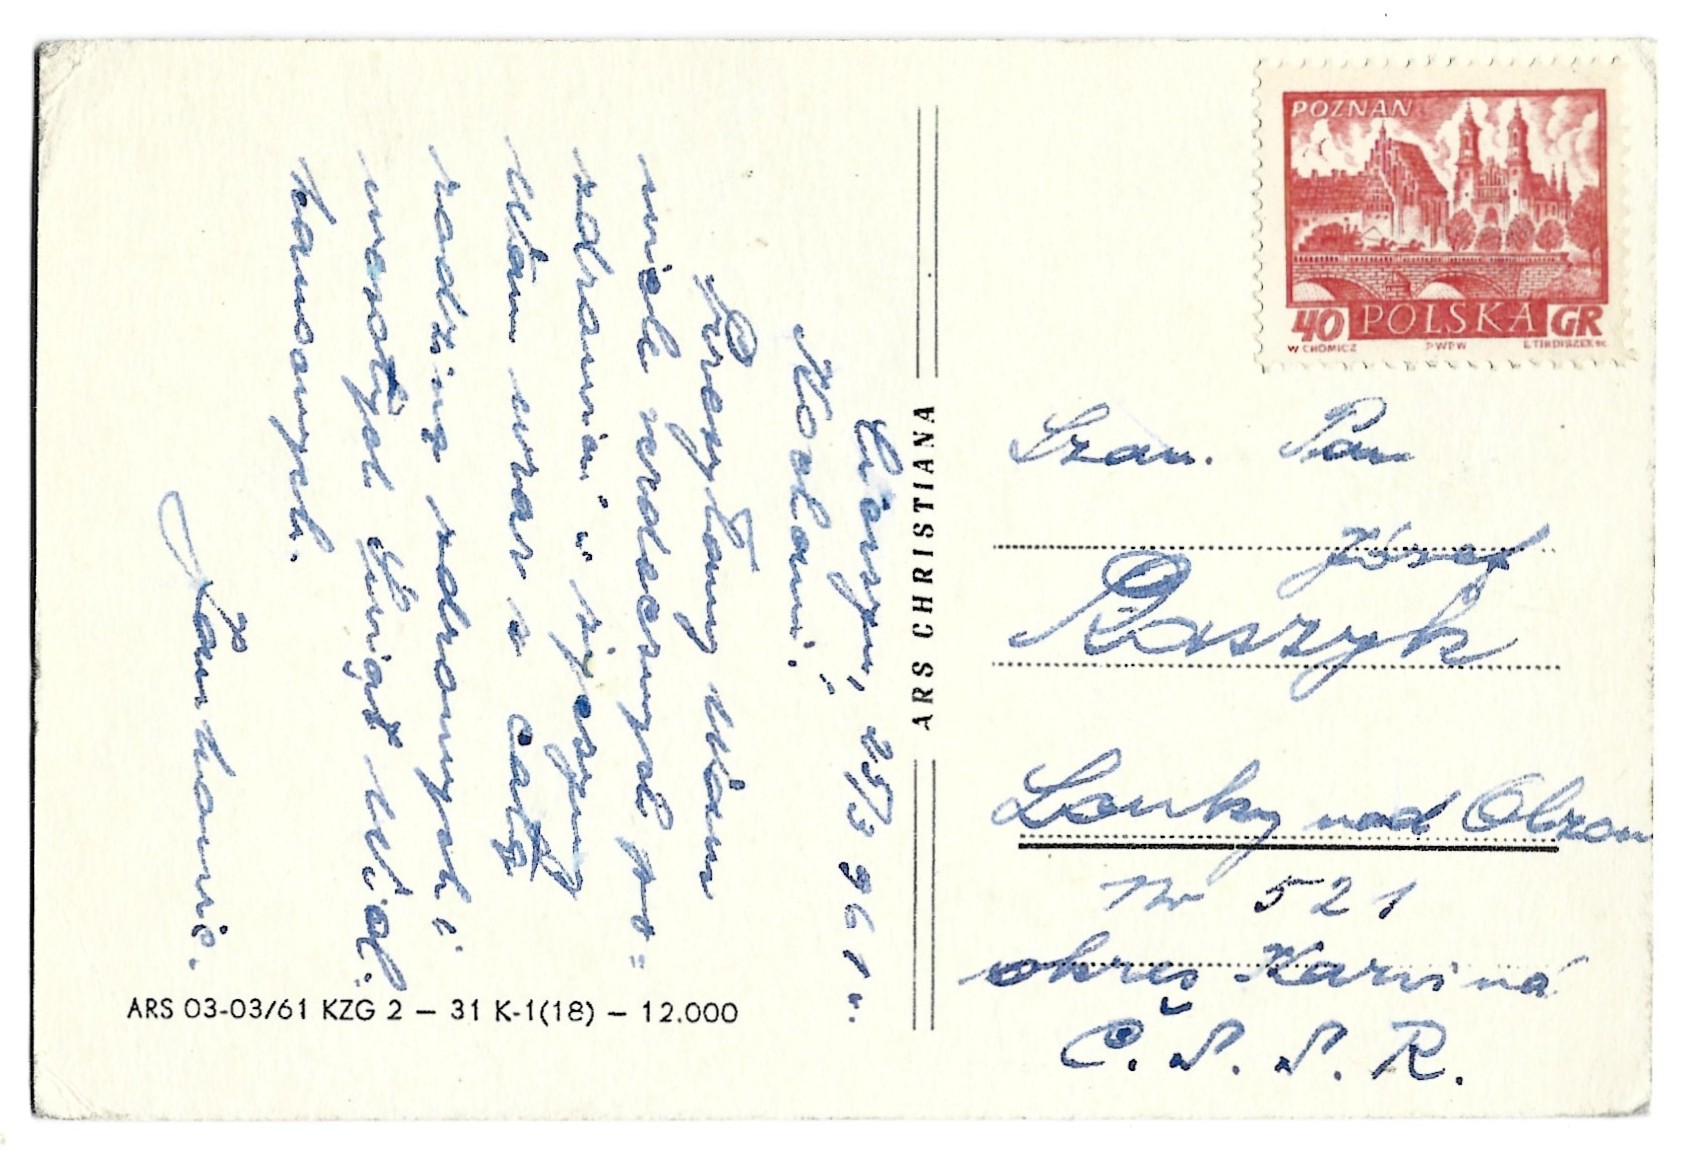 Cieszyn, 25/3 961 r.
Kochani!
Przesyłamy Wam
wiele serdecznych po=
zdrowień i życzymy
Wam wraz z całą
rodziną zdrowych i
wesołych Świąt Wiel.
kanocnych.
Jankowie.
ARS 03-03/61 KZG 2 – 31 K-1(18) – 12.000
ARS CHRISTIANA
POZNAŃ
40 POLSKA GR
W CHOMICZ PWPW E.TIRDISZEK sc.
Szan. Pan
Józef
Raszyk
Louky nad Olzou
Nr 521
okres Karviná
Č. S. S. R.